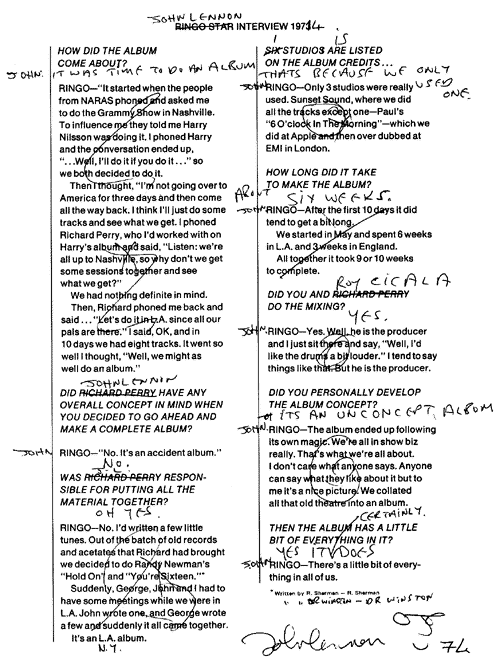 JOHN LENNON
RINGO STAR INTERVIEW 1973 74
HOW DID THE ALBUM
COME ABOUT?
JOHN. IT WAS TIME TO DO AN ALBUM
RINGO—"It started when the people
from NARAS phoned and asked me
to do the Grammy Show in Nashville.
To influence me they told me Harry
Nilsson was doing it. I phoned Harry
and the conversation ended up,
"...Well, I'll do it if you do it..." so
we both decided to do it.
Then I thought, "I'm not going over to
America for three days and then come
all the way back. I think I'll just do some
tracks and see what we get. I phoned
Richard Perry, who I'd worked with on
Harry's album and said, "Listen: we're
all up to Nashville, so why don't we get
some sessions together and see
what we get?"
We had nothing definite in mind.
Then, Richard phoned me back and
said..."Let's do it in L.A. since all our
pals are there." I said, OK, and in
10 days we had eight tracks. It went so
well I thought, "Well, we might as
well do an album."
JOHN LENNON
DID RICHARD PERRY HAVE ANY
OVERALL CONCEPT IN MIND WHEN
YOU DECIDED TO GO AHEAD AND
MAKE A COMPLETE ALBUM?
JOHN RINGO—"No. It's an accident album."
NO.
WAS RICHARD PERRY RESPON-
SIBLE FOR PUTTING ALL THE
MATERIAL TOGETHER?
OH YES.
RINGO—No. I'd written a few little
tunes. Out of the batch of old records
and acetates that Richard had brought
we decided to do Randy Newman's
"Hold On" and "You're Sixteen."*
Suddenly, George, John and I had to
have some meetings while we were in
L.A. John wrote one, and George wrote
a few and suddenly it all came together.
It's an L.A. album.
N.Y.
1 IS
SIX STUDIOS ARE LISTED
ON THE ALBUM CREDITS...
THATS BECAUSE WE ONLY
USED ONE.
JOHN RINGO—Only 3 studios were really
used. Sunset Sound, where we did
all the tracks except one—Paul's
"6 O'clock In The Morning"—which we
did at Apple and then over dubbed at
EMI in London.
HOW LONG DID IT TAKE
TO MAKE THE ALBUM?
ABOUT SIX WEEKS.
JOHN RINGO—After the first 10 days it did
tend to get a bit long.
We started in May and spent 6 weeks
in L.A. and 3 weeks in England.
All together it took 9 or 10 weeks
to complete.
ROY CICALA
DID YOU AND RICHARD PERRY
DO THE MIXING?
YES.
JOHN RINGO—Yes. Well, he is the producer
and I just sit there and say, "Well, I'd
like the drums a bit louder." I tend to say
things like that. But he is the producer.
DID YOU PERSONALLY DEVELOP
THE ALBUM CONCEPT?
ITS AN UNCONCEPT ALBUM
JOHN. RINGO—The album ended up following
its own magic. We're all in show biz
really. That's what we're all about.
I don't care what anyone says. Anyone
can say what they like about it but to
me it's a nice picture. We collated
all that old theatre into an album.
CERTAINLY.
THEN THE ALBUM HAS A LITTLE
BIT OF EVERYTHING IN IT?
YES IT DOES
JOHN RINGO—There's a little bit of every-
thing in all of us.
* Written by R. Sherman — R. Sherman
" " DR WINSTON — DR WINSTON
John Lennon
74